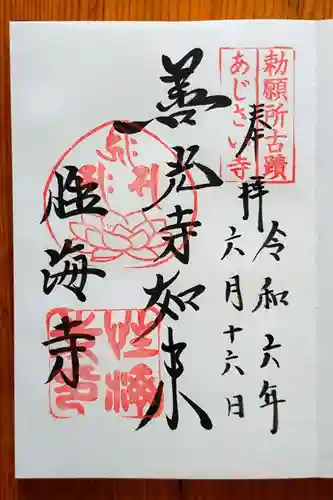 勅願所古蹟
あじさい寺
奉拝
令和六年
六月十六日
善光寺如来
性海寺